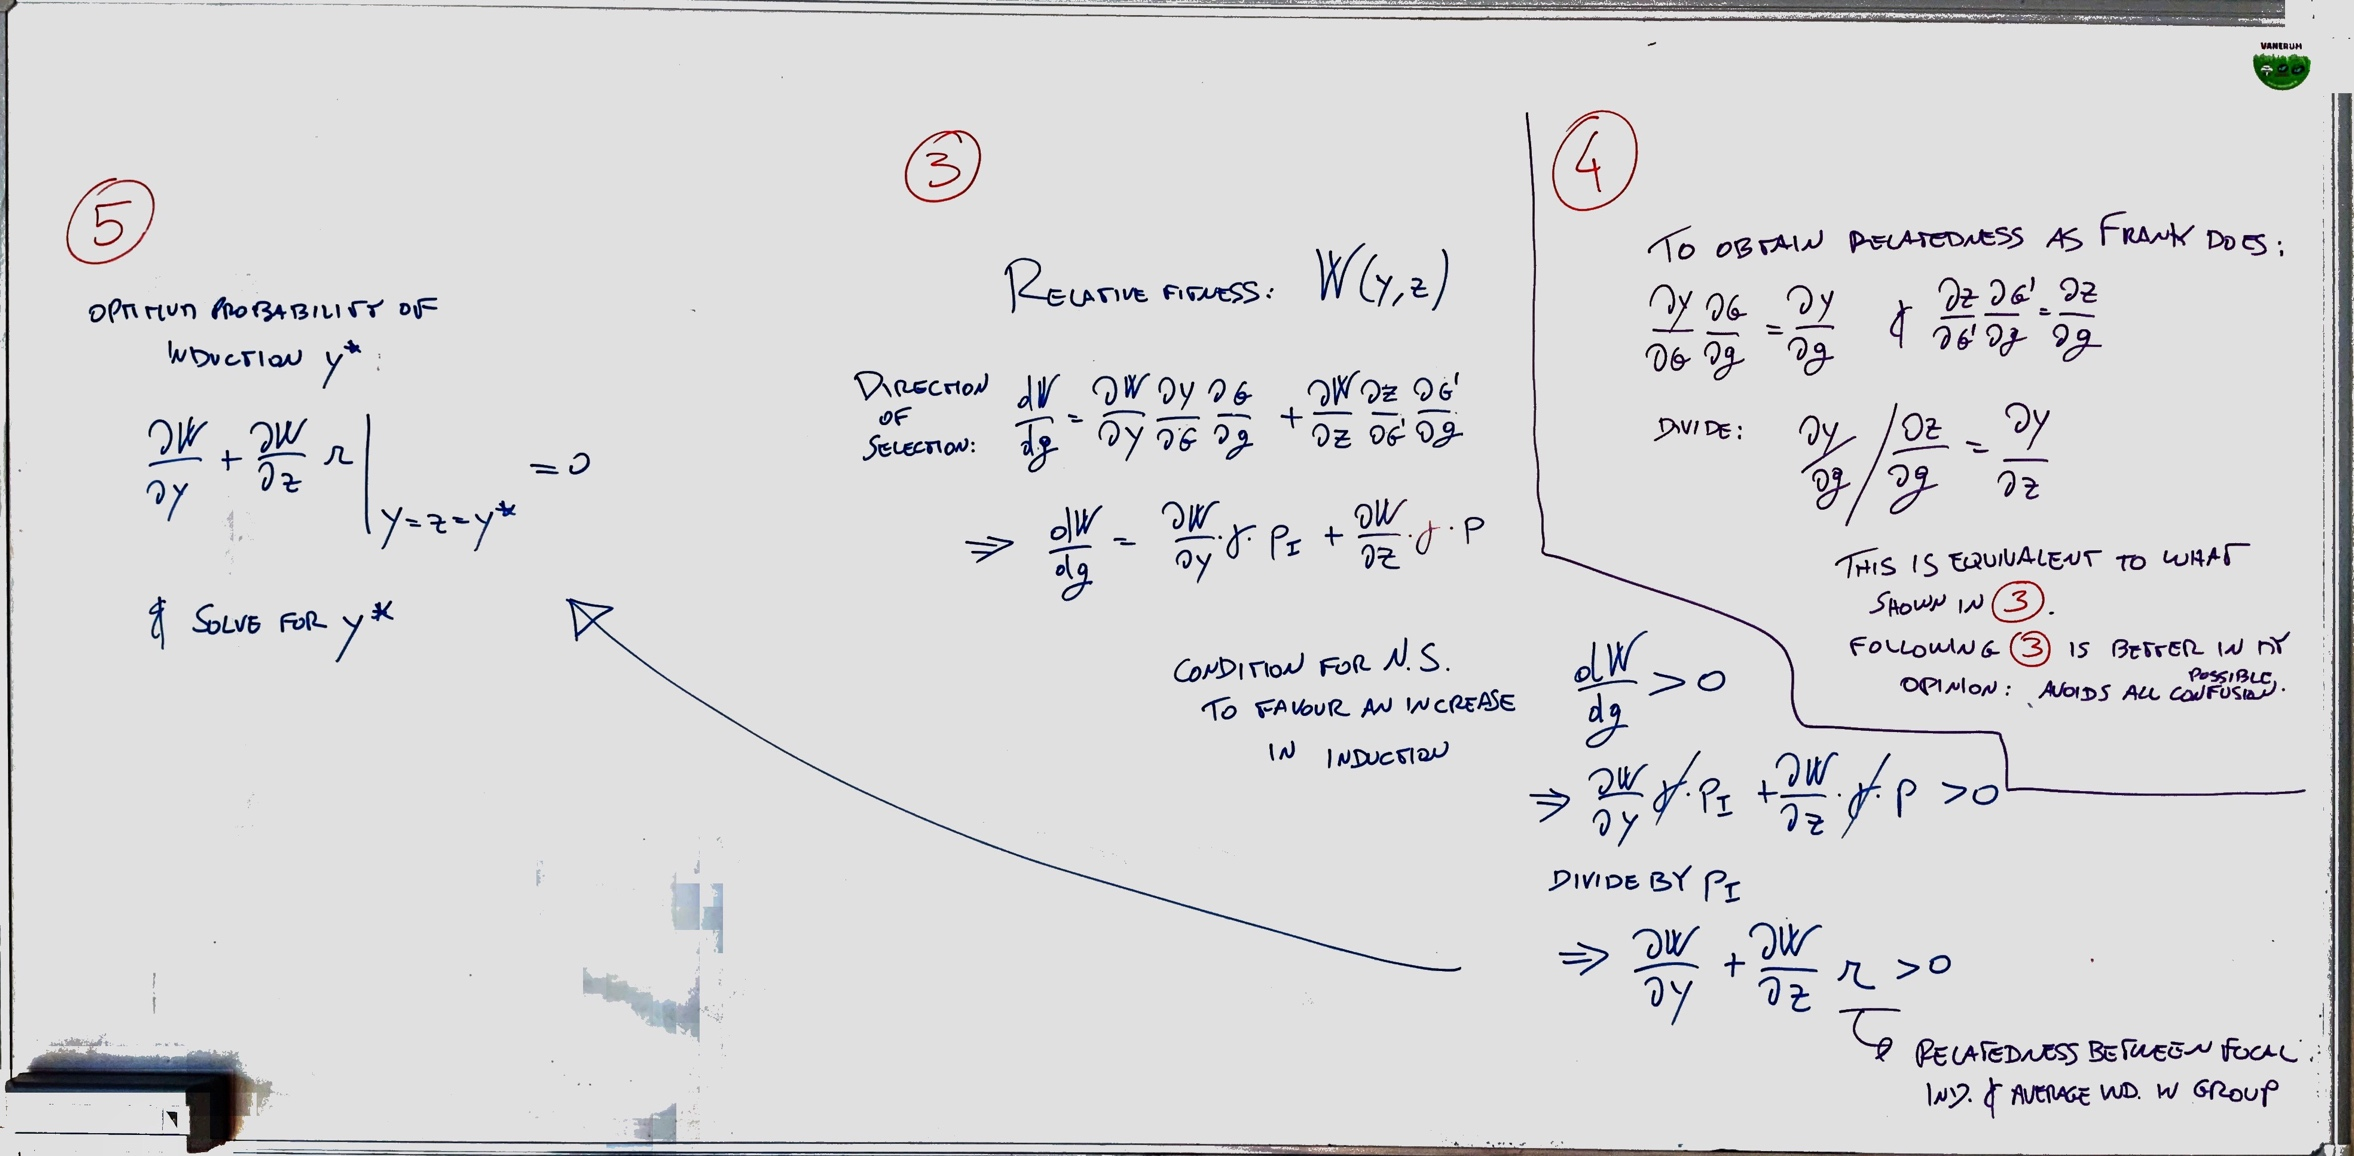 VANERUM
5
OPTIMUM PROBABILITY OF
INDUCTION y*:
∂W/∂y + ∂W/∂z r |y=z=y* = 0
& SOLVE FOR y*
3
RELATIVE FITNESS: W(y,z)
DIRECTION OF SELECTION: dW/dg = ∂W/∂y ∂y/∂G ∂G/∂g + ∂W/∂z ∂z/∂G' ∂G'/∂g
⇒ dW/dg = ∂W/∂y · γ · PI + ∂W/∂z · γ · P
CONDITION FOR N.S.
TO FAVOUR AN INCREASE
IN INDUCTION
dW/dg > 0
⇒ ∂W/∂y γ · PI + ∂W/∂z · γ · P > 0
DIVIDE BY PI
⇒ ∂W/∂y + ∂W/∂z r > 0
RELATEDNESS BETWEEN FOCAL
IND. & AVERAGE IND. IN GROUP
4
TO OBTAIN RELATEDNESS AS FRANK DOES:
∂y/∂G ∂G/∂g = ∂y/∂g & ∂z/∂G' ∂G'/∂g = ∂z/∂g
DIVIDE: ∂y/∂g / ∂z/∂g = ∂y/∂z
THIS IS EQUIVALENT TO WHAT
SHOWN IN 3.
FOLLOWING 3 IS BETTER IN MY
OPINION: AVOIDS ALL POSSIBLE CONFUSION.